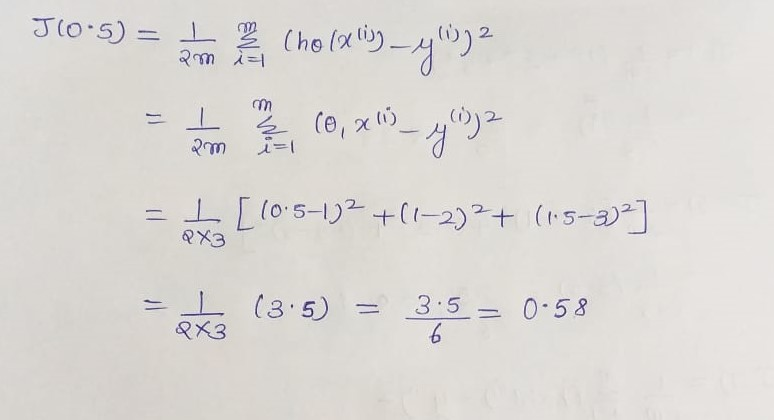 J(0.5) = 1/2m m∑i=1 (hθ(x⁽ⁱ⁾) – y⁽ⁱ⁾)²
= 1/2m m∑i=1 (θ₁ x⁽ⁱ⁾ – y⁽ⁱ⁾)²
= 1/2×3 [(0.5–1)² + (1–2)² + (1.5–3)²]
= 1/2×3 (3.5) = 3.5/6 = 0.58